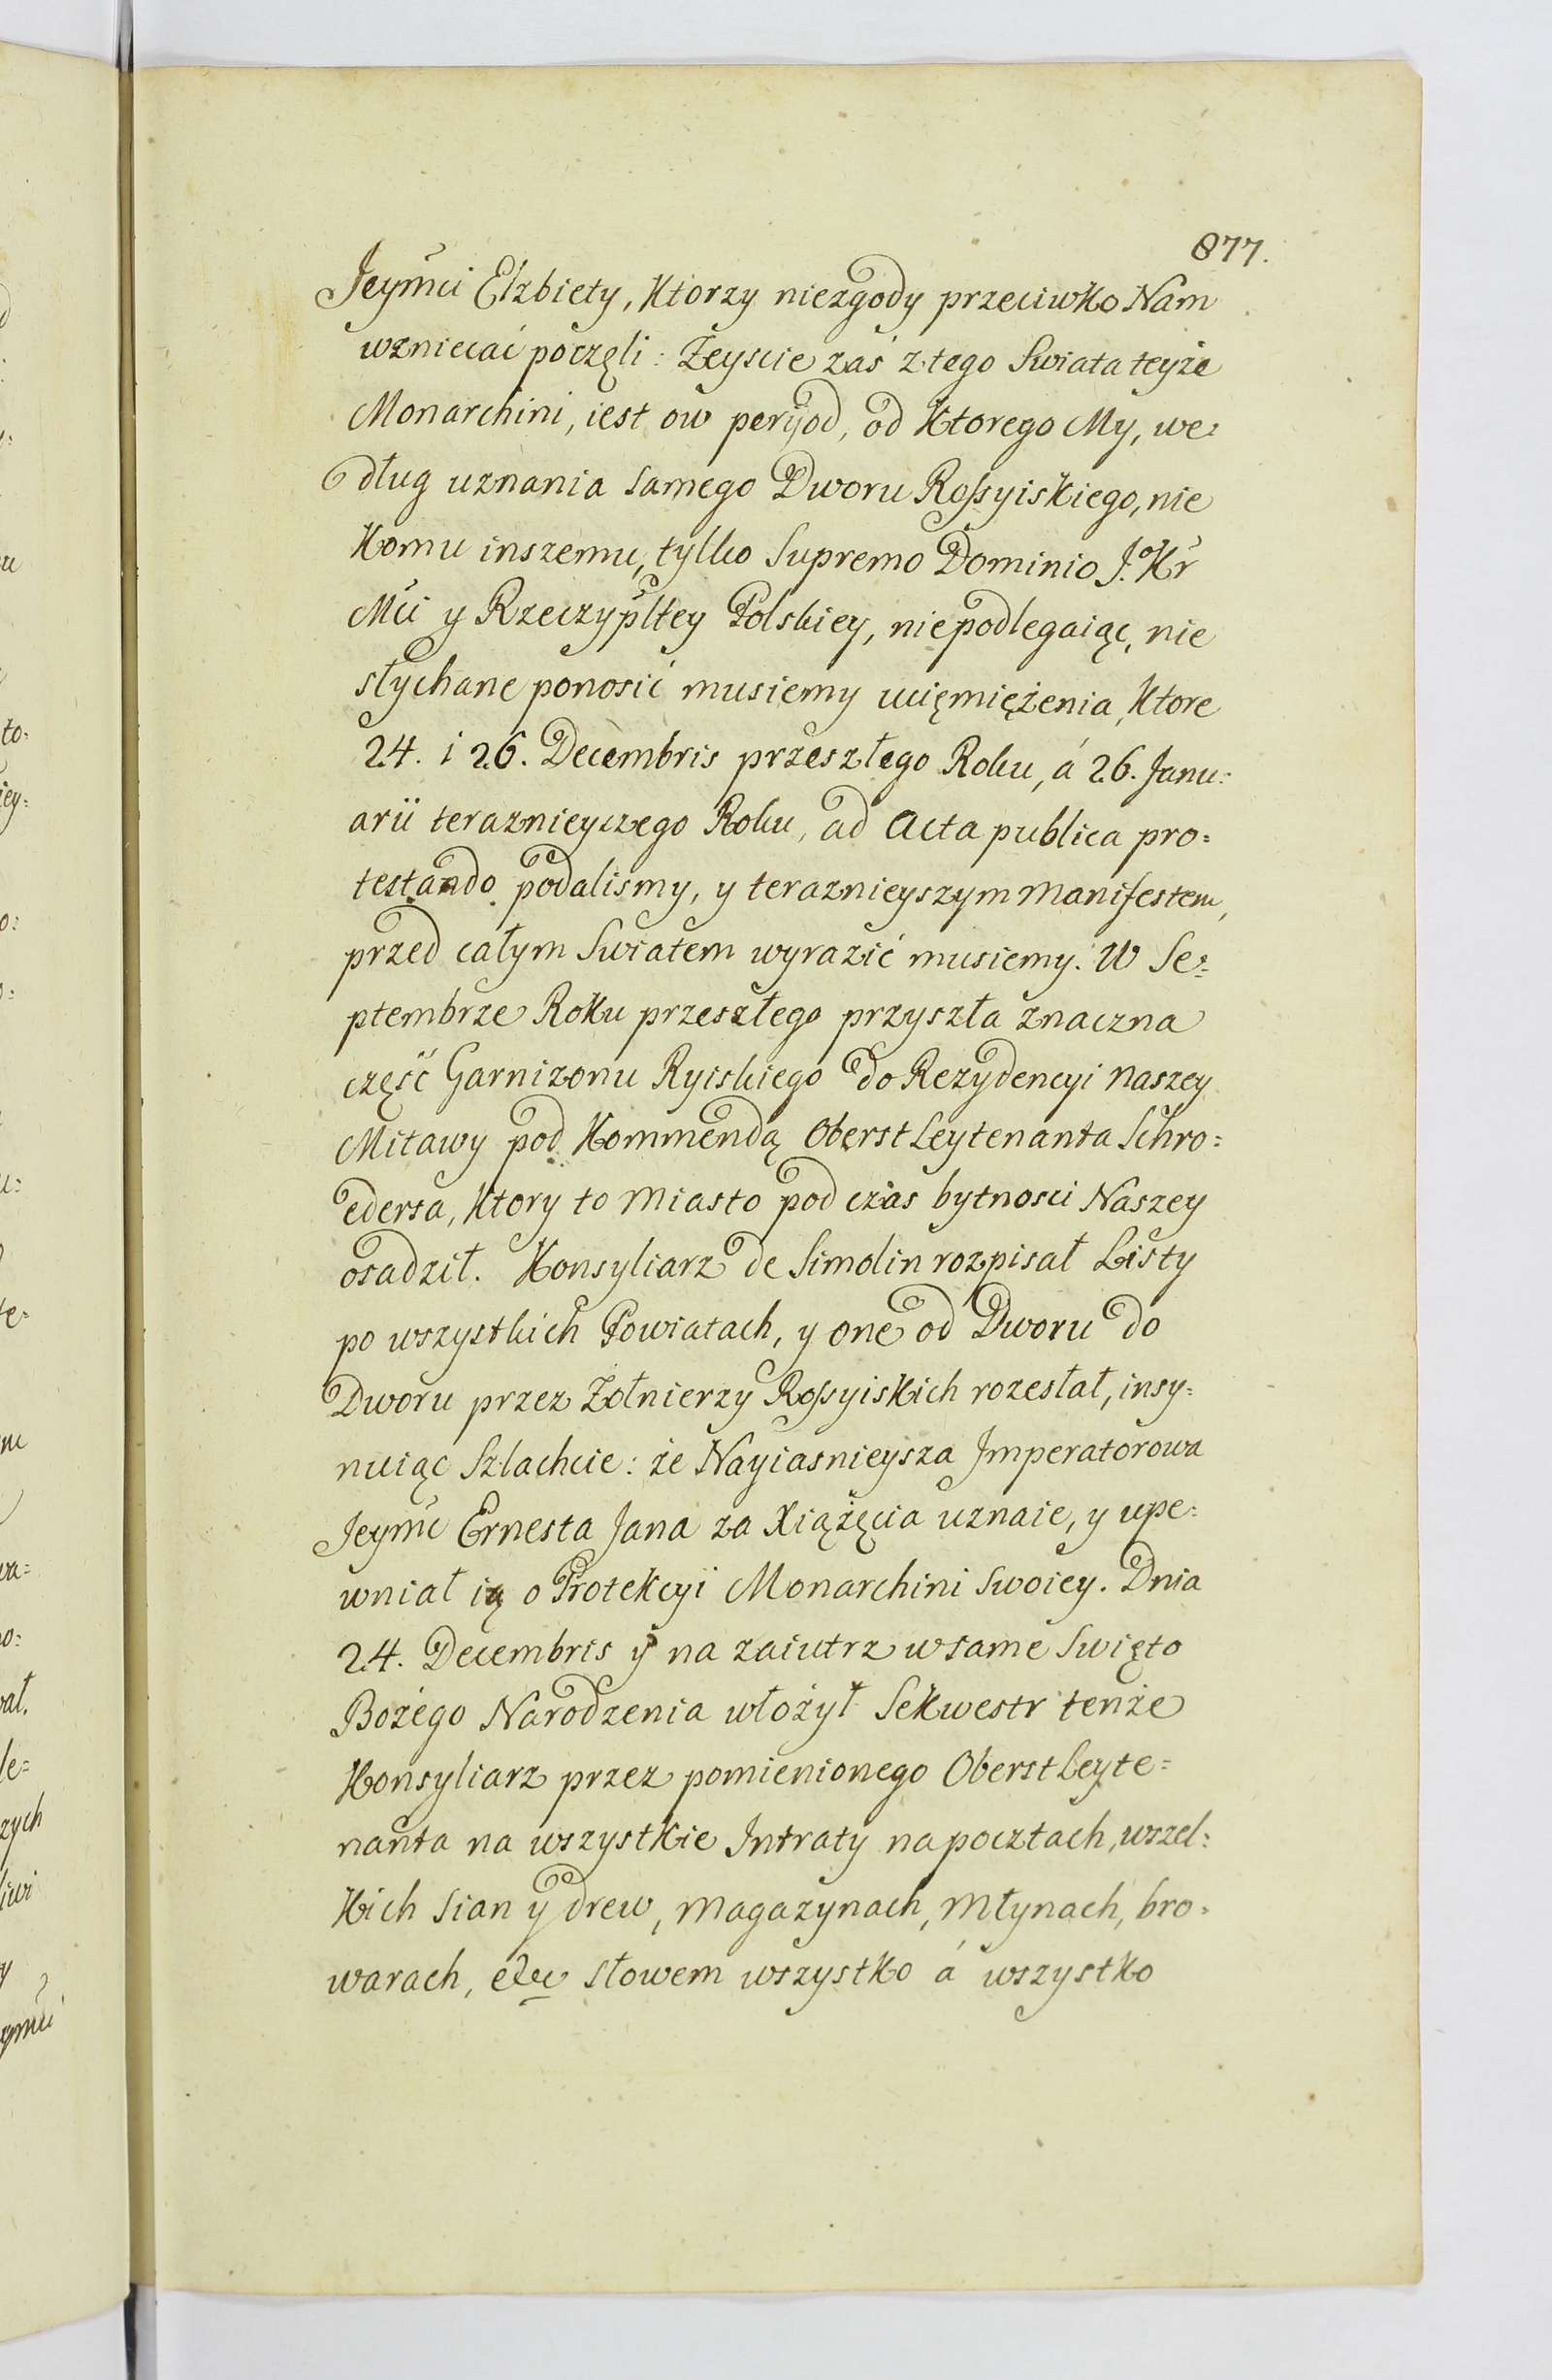 877.
Jeymci Elzbiety, Ktorzy niezgody przeciwko Nam
wzniecać poczęli: Zeyscie zaś z tego Swiata teyże
Monarchini, iest ow peryod, od Ktorego My, we=
dług uznania samego Dworu Rossyiskiego, nie
Komu inszemu, tylko Supremo Dominio J. Kr
Mci y Rzeczypltey Polskiey, niepodlegaiąc, nie
słychane ponosić musiemy ucięmiężenia, Ktore
24. i 26. Decembris przeszłego Roku, á 26. Janu=
arii teraznieyczego Roku, ad Acta publica pro=
testando podalismy, y teraznieyszym Manifestem,
przed całym Swiatem wyrazić musiemy. W Se=
ptembrze Roku przeszłego przyszła znaczna
część Garnizonu Ryiskiego do Rezydencyi naszey
Mitawy pod Kommendą Oberst Leytenanta Schro=
edersa, Ktory to Miasto pod czas bytnosci Naszey
osadził. Konsyliarz de Simolin rozpisał Listy
po wszystkich Powiatach, y one od Dworu do
Dworu przez Żołnierzy Rossyiskich rozesłał, insy=
nuiąc Szlachcie: że Nayiasnieysza Jmperatorowa
Jeymc Ernesta Jana za Xiążęcia uznaie, y upe=
wniał ią o Protekcyi Monarchini Swoiey. Dnia
24. Decembris y na zaiutrz w same Swięto
Bożego Narodzenia włożył Sekwestr tenże
Konsyliarz przez pomienionego Oberst Leyte=
nanta na wszystkie Jntraty na pocztach, wszel=
Kich Sian y drew, Magazynach, Młynach, bro=
warach, etc słowem wszystko á wszystko